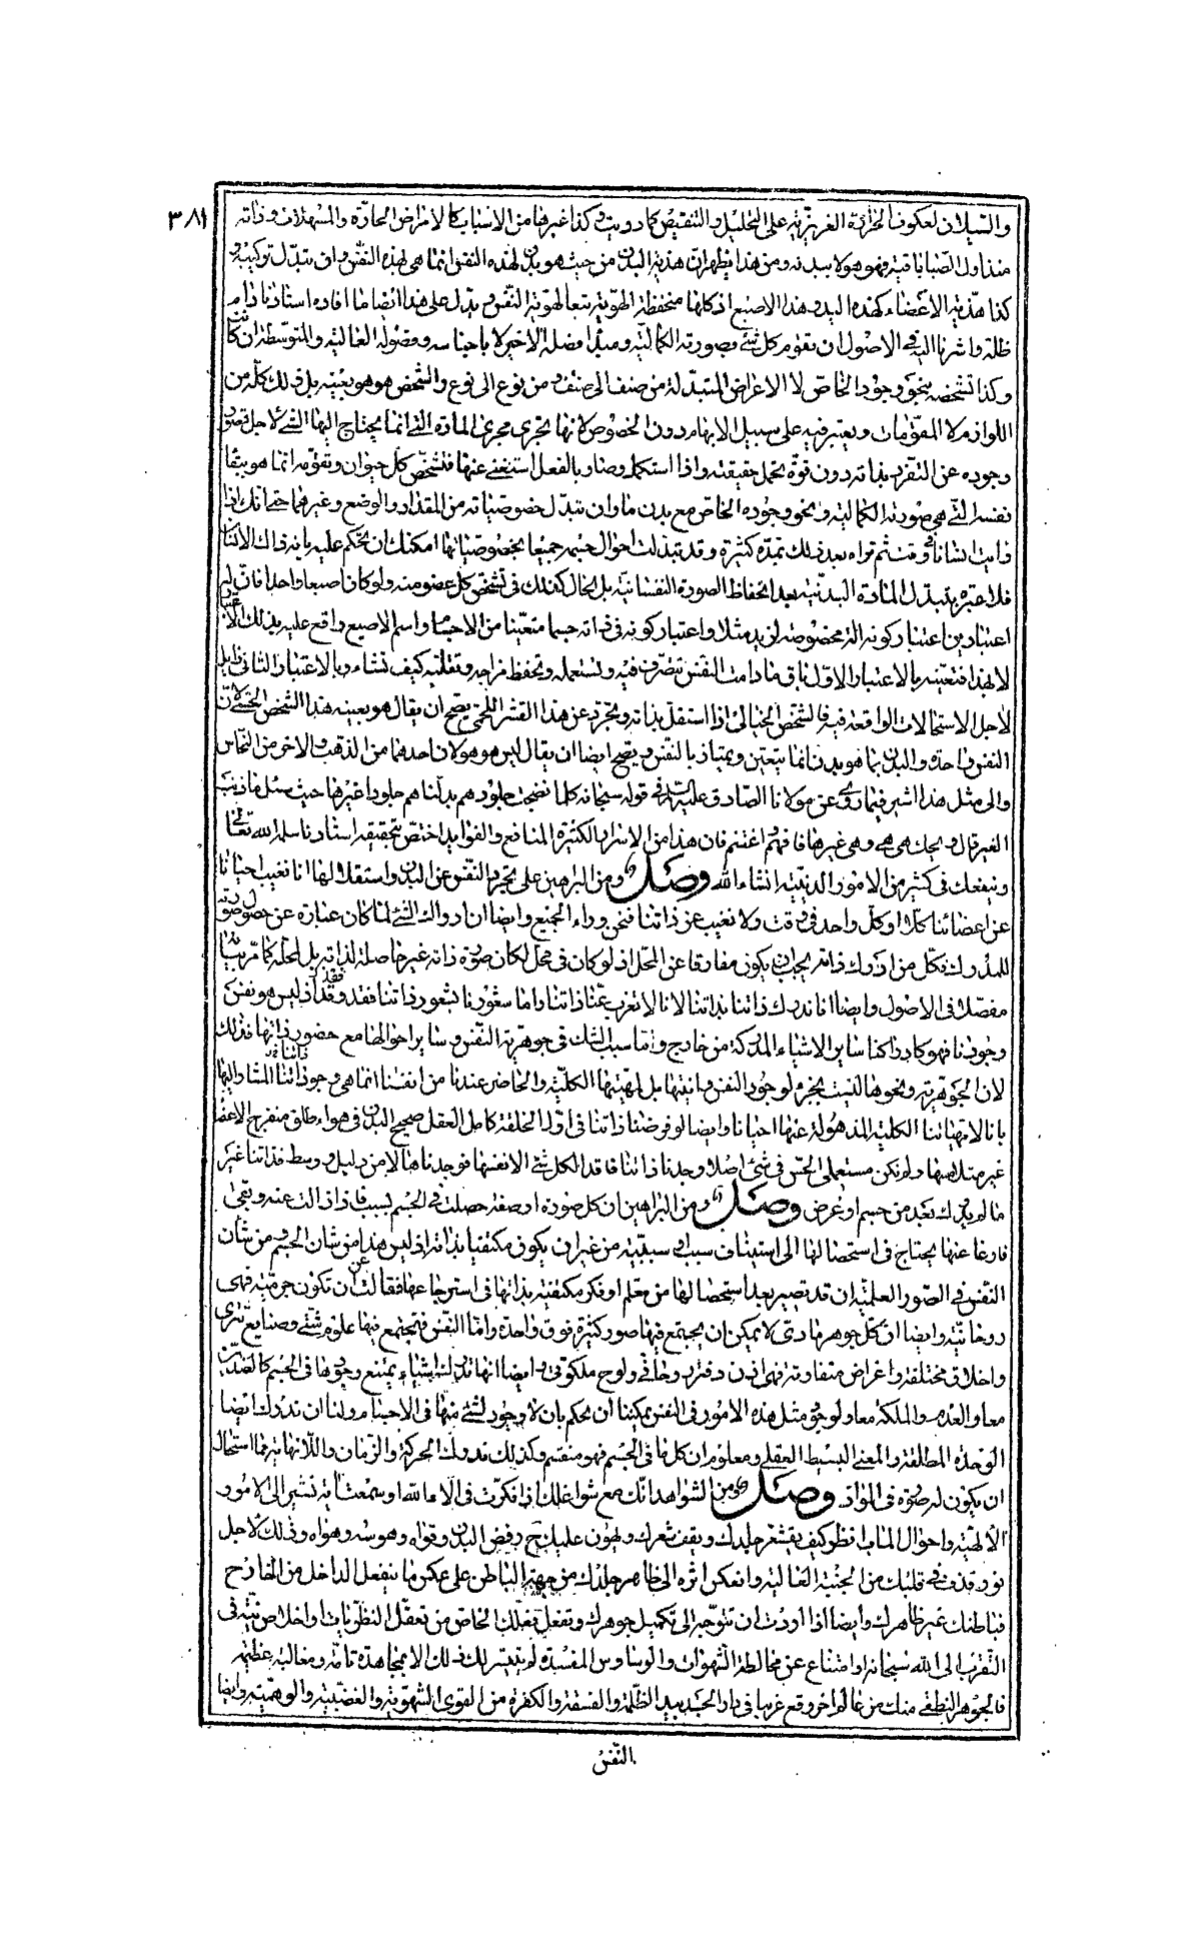 ٣٨١
والسيلان لعكوف الحرارة الغريزية على التحليل والتنقيص كما دريت وكذا غيرها من الاسباب كالامراض الحادة والمسهلات وذاته
منذ اول الصبا باقية فهو هو لا ببدنه ومن هذا يظهر ان هذية البدن من حيث هو بدن لهذه النفس انما هى لهذه النفس وان تبدل تركيبه و
كذا هذية الاعضاء كهذه اليد وهذا الاصبع اذ كلها منحفظة الهوية تبعا لهوية النفس ويدل على هذا ايضا ما افاده استادنا دام
ظله واشرنا اليه فى الاصول ان تقوم كل شئ بصورته الكمالية ومبدأ فصله الاخير لا باجناسه وفصوله العالية والمتوسطة ان كانت
وكذا تشخصه بنحو وجوده الخاص لا الاعراض المتبدلة من صنف الى صنف و من نوع الى نوع والشخص هو هو بعينه بل ذلك كله من
اللوازم لا المقومات ويعتبر فيه على سبيل الابهام دون الخصوص لانها تجرى مجرى المادة التى انما يحتاج اليها الشئ لاجل قصور
وجوده عن التفرد بذاته دون قوة تحمل حقيقته واذا استكمل وصار بالفعل استغنى عنها فتشخص كل حيوان وتقومه انما هو ببقاء
نفسه التى هى صورته الكمالية ونحو وجوده الخاص مع بدن ما وان تبدل خصوصياته من المقدار والوضع وغيرهما حتى انك اذا
رايت انسانا فى وقت ثم تراه بعد ذلك بمدة كثيرة وقد تبدلت احوال جسمه جميعا بخصوصياتها امكنك ان تحكم عليه بانه ذاك الانسان
فلا عبرة بتبدل المادة البدنية بعد انحفاظ الصورة النفسانية بل الحال كذلك فى تشخص كل عضو منه ولو كان اصبعا واحدا فان له
اعتبارين اعتبار كونه آلة مخصوصة لزيد مثلا واعتبار كونه فى ذاته جسما متعينا من الاجسام واسم الاصبع واقع عليه بذلك الاعتبار
لا بهذا فتعينه بالاعتبار الاول باق ما دامت النفس تتصرف فيه وتستعمله وتحفظ مزاجه وتقلبه كيف تشاء وبالاعتبار الثانى زايل
لاجل الاستحالات الواقعة فيه فالشخص الخيالى اذا استقل بذاته وتجرد عن هذا القشر اللحمى يصح ان يقال هو بعينه هذا الشخص الحسى لان
النفس واحدة والبدن بما هو بدن انما يتعين ويمتاز بالنفس ويصح ايضا ان يقال ليس هو هو لان احدهما من الذهب والاخر من النحاس
والى مثل هذا اشير فيما روى عن مولانا الصادق عليه السلام فى قوله سبحانه كلما نضجت جلودهم بدلناهم جلودا غيرها حيث سئل ما ذنب
الغير قال ويحك هى هى وهى غيرها فافهم واغتنم فان هذا من الاسرار الكثيرة المنافع والفوايد اختص بتحقيقه استادنا سلمه الله تعالى
وينفعك فى كثير من الامور الدينية انشاء الله وصل ومن البراهين على تجرد النفس عن البدن واستقلالها انا نغيب احيانا
عن اعضائنا كلا او كل واحد فى وقت ولا نغيب عن ذاتنا فنحن وراء الجميع وايضا ان ادراك الشئ لما كان عبارة عن حصول صورته
للمدرك فكل من ادرك ذاته يجب ان يكون مفارقا عن المحل اذ لو كان فى محل لكان صورة ذاته غير حاصلة لذاته بل لمحله كما مر بيانه
مفصلا فى الاصول وايضا انا ندرك ذاتنا بذاتنا لانا لا نعزب عنا ذاتنا واما شعورنا بشعور ذاتنا فقد وقد اذ ليس هو نفس
وجودنا فهو كادراكنا ساير الاشياء المدركة من خارج واما سبب الشك فى جوهرية النفس وساير احوالها مع حضور ذاتها فذلك
لان الجوهرية ونحوها ليست بجزء لوجود النفس وانيتها بل لمهيتها الكلية والحاضر عندنا من انفسنا انما هى وجود ذاتنا المشار اليها
بانا لا مهياتنا الكلية المذهولة عنها احيانا وايضا لو فرضنا ذاتنا فى اول الخلقة كامل العقل صحيح البدن فى هواء طلق منفرج الاعضاء
غير متلامسها ولم نكن مستعملى الحس فى شئ اصلا وجدنا ذاتنا فاقد الكل شئ الا نفسها فوجدناها لا من دليل و وسط فذاتنا غير
ما لم يدرك بعد من جسم او عرض وصل ومن البراهين ان كل صورة او صفة حصلت فى الجسم بسبب فاذا زالت عنه وبقى
فارغا عنها يحتاج فى استحصالها الى استيناف سبب او سببية من غير ان يكون مكتفيا بذاته اذ ليس هذا من شان الجسم ومن شان
النفس فى الصور العلمية ان قد تصير بعد استحصالها من معلم او فكر مكتفية بذاتها فى استرجاعها فتعالت عن ان تكون جرمية فهى
روحانية وايضا ان كل جوهر مادى لا يمكن ان يجتمع فيها صور كثيرة فوق واحدة واما النفس فتجتمع فيها علوم شتى وصنايع تترى
واخلاق مختلفة واغراض متفاوتة فهى اذن دفتر روحانى ولوح ملكوتى وايضا انها تدرك اشياء يمتنع وجودها فى الجسم كالضدين
معا والعدم والملكة معا ولو لا وجود مثل هذه الامور فى النفس لم يمكننا ان نحكم بان لا وجود لشئ منها فى الاجسام ولنا ان ندرك ايضا
الوحدة المطلقة والمعنى البسيط العقلى ومعلوم ان كل ما فى الجسم فهو منقسم وكذلك ندرك الحركة والزمان واللانهاية مما استحال
ان يكون له صورة فى المواد وصل ومن الشواهد انك مع شواغلك اذا فكرت فى آلاء الله او سمعت آية تشير الى الامور
الالهية واحوال المآب انظر كيف يقشعر جلدك ويقف شعرك ويهون عليك ح رفض البدن وقواه وهوسه وهواه وذلك لاجل
نور قذف فى قلبك من الجنبة العالية وانعكس اثره الى ظاهر جلدك من جهة الباطن على عكس ما ينفعل الداخل من الخارج
فباطنك غير ظاهرك وايضا اذا اردت ان تتوجه الى تكميل جوهرك وتفعل بفعلك الخاص من تعقل النظريات او اخلاص نية فى
التقرب الى الله سبحانه او امتناع عن مخالطة الشهوات والوساوس المفسدة لم يتيسر لك ذلك الا بمجاهدة تامة ومغالبة عظيمة
فالجوهر النطقى منك من عالم اخر وقع غريبا فى دار الجسد بيد الظلمة والفسقة والكفرة من القوى الشهوية والغضبية والوهمية وايضا
النفس